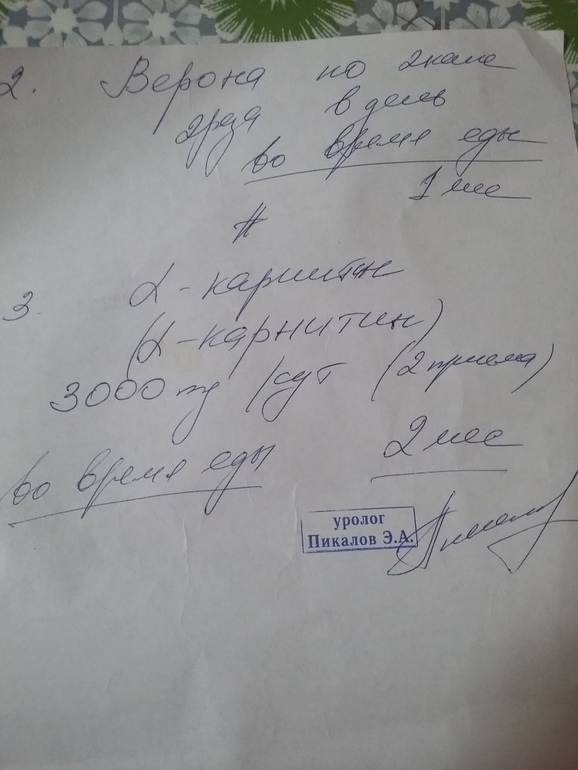 2. Верона по 2 капс
2 раза в день
во время еды
1 мес
#
3. L-карнитин
(L-карнитин)
3000 mg /сут (2 приема)
во время еды 2 мес
уролог
Пикалов Э.А.